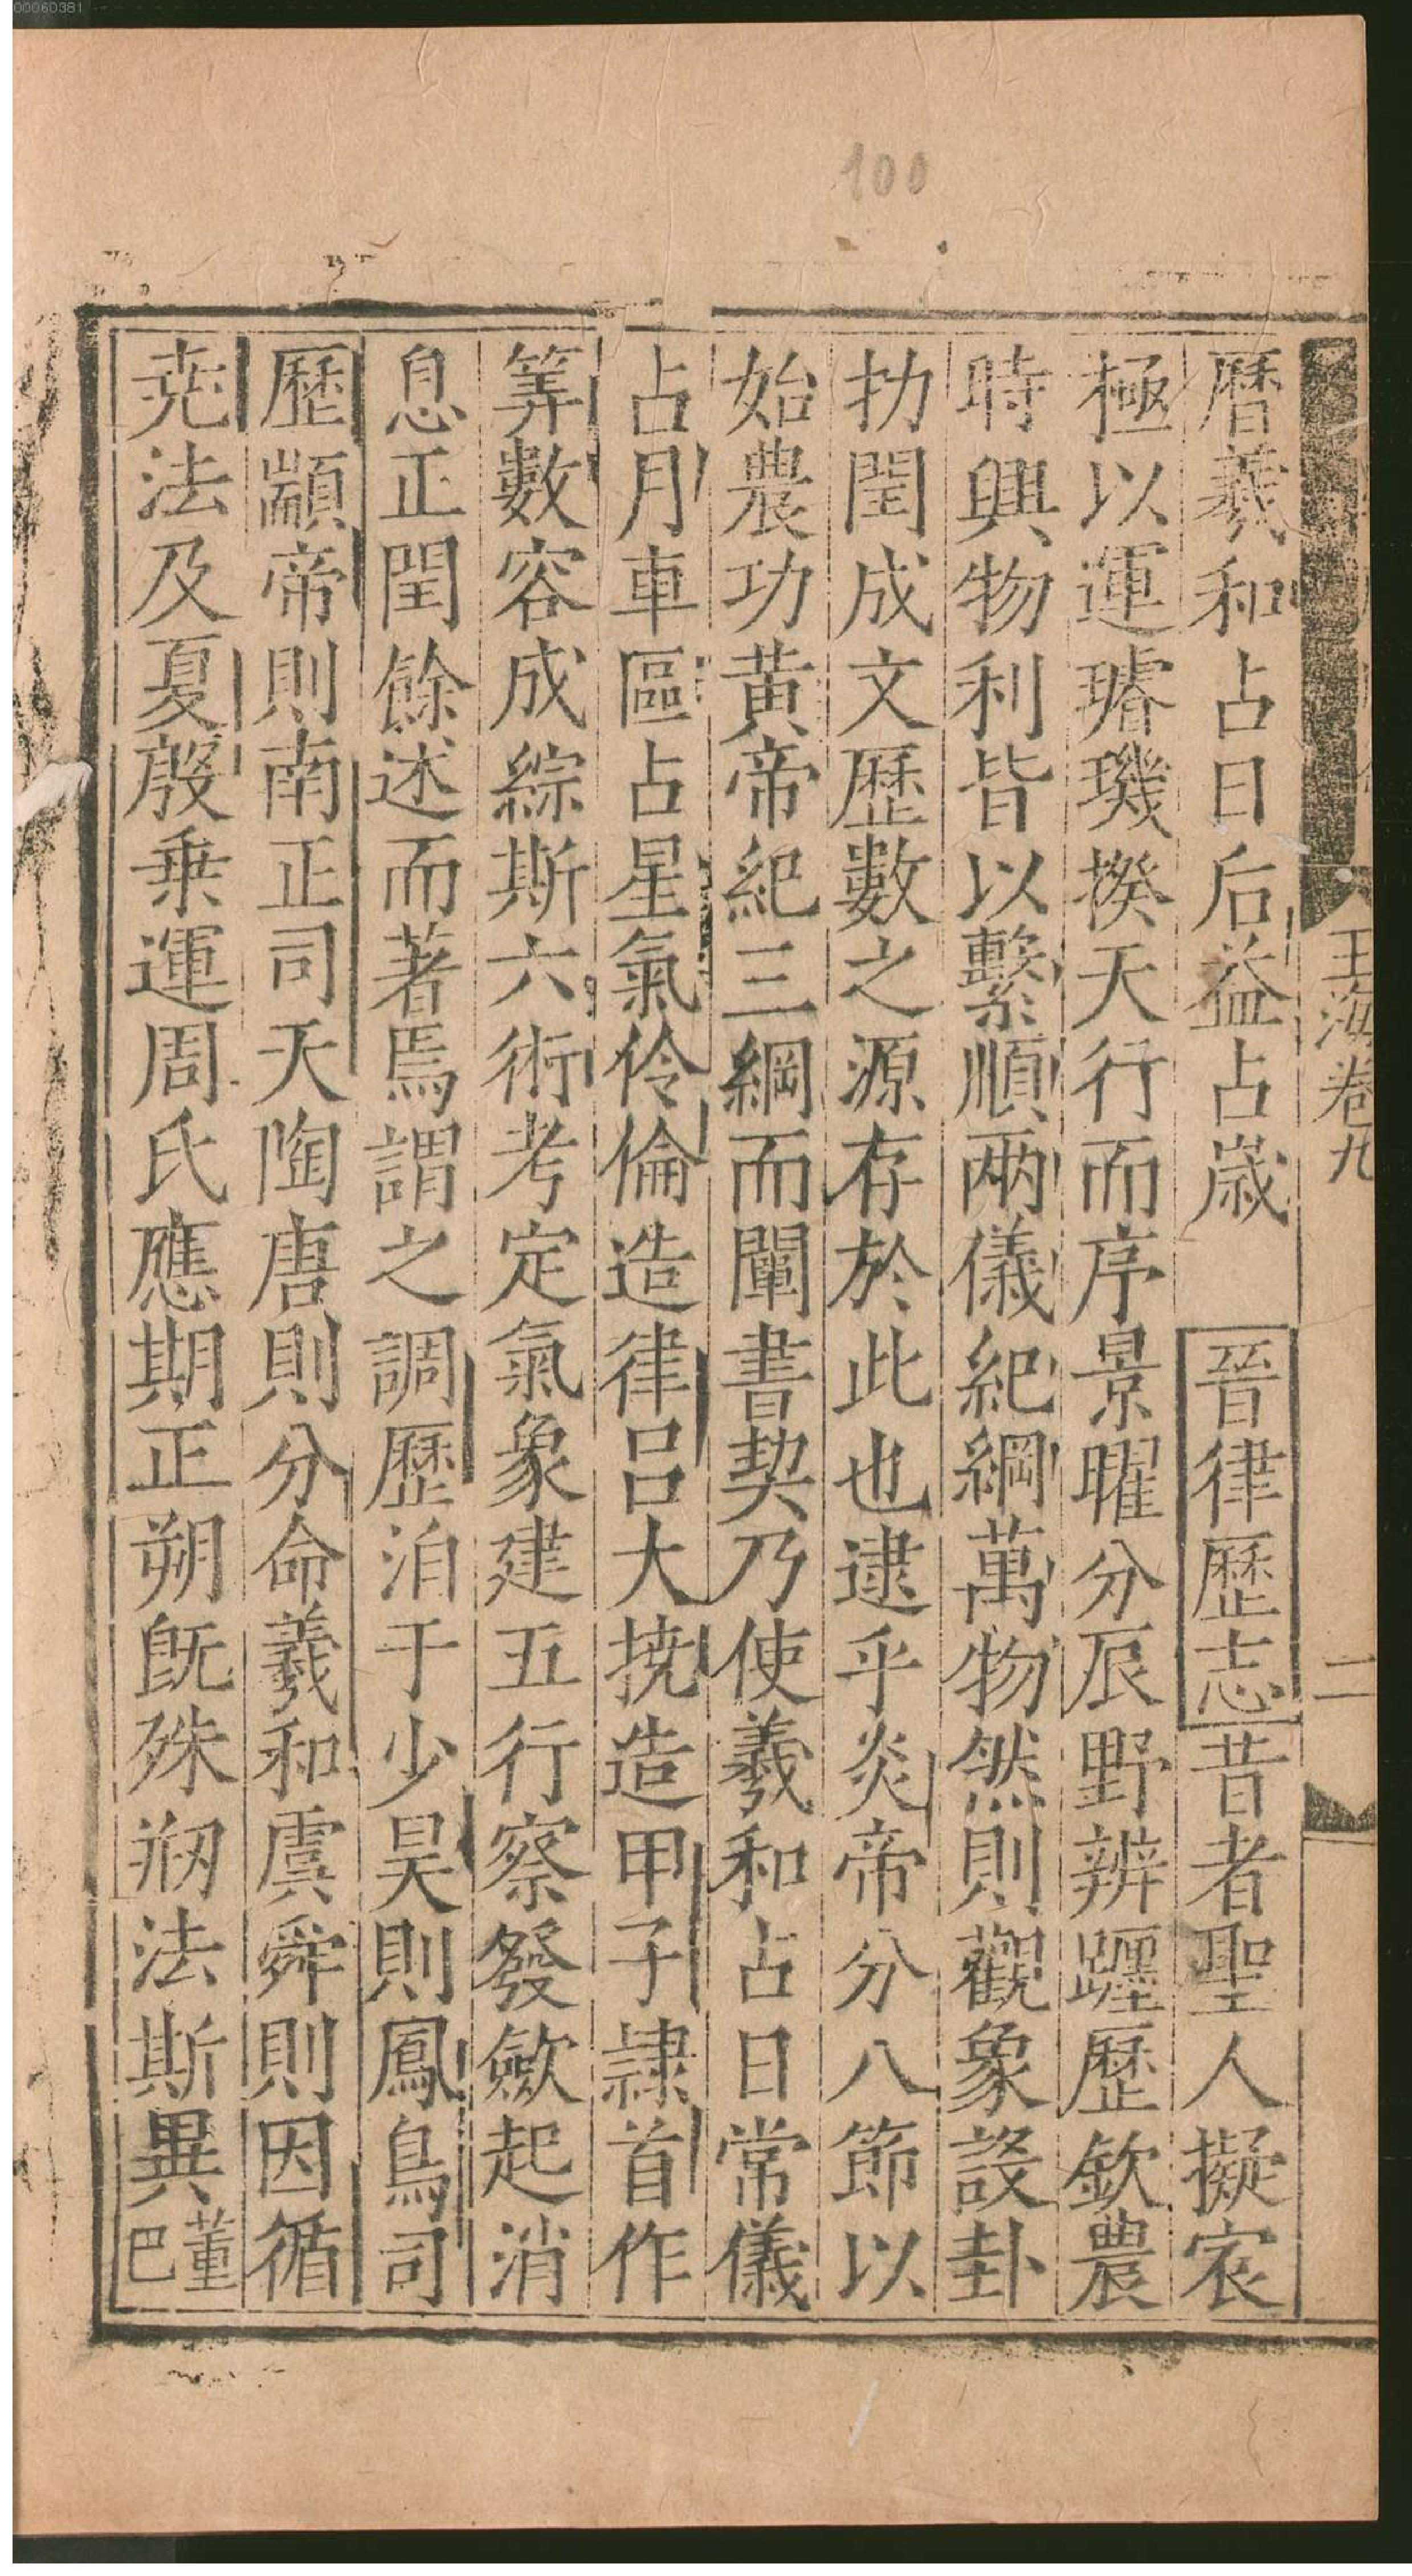 00060381
100
玉海卷九
二
曆羲和占日后益占歲　晉律歷志昔者聖人擬宸
極以運璿璣揆天行而序景曜分辰野辨躔歷欽農
時興物利皆以繫順兩儀紀綱萬物然則觀象設卦
扐閏成文歷數之源存於此也逮乎炎帝分八節以
始農功黃帝紀三綱而闡書契乃使羲和占日常儀
占月車區占星氣伶倫造律呂大撓造甲子隷首作
筭數容成綜斯六術考定氣象建五行察發斂起消
息正閏餘述而著焉謂之調歷洎于少昊則鳳鳥司
歷顓帝則南正司天陶唐則分命羲和虞舜則因循
尭法及夏殷乗運周氏應期正朔旣殊剏法斯異董巴